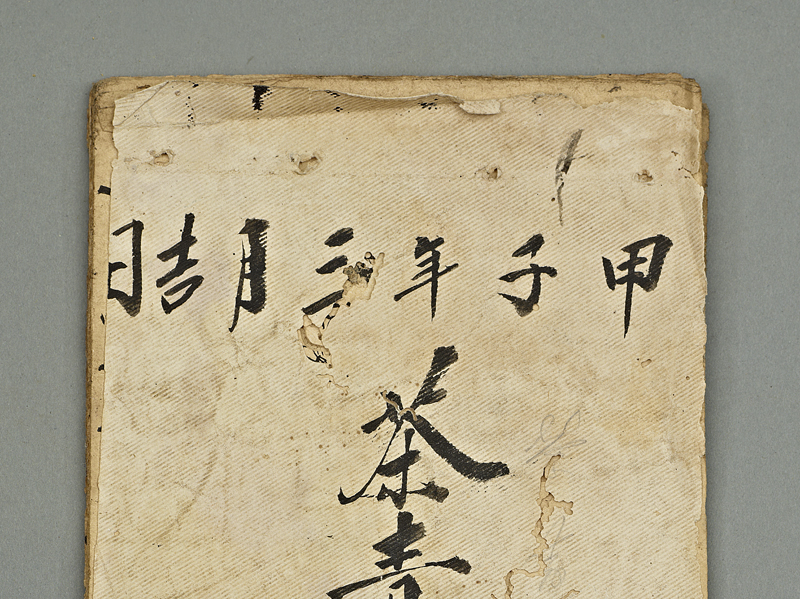 甲子年三月吉日
茶